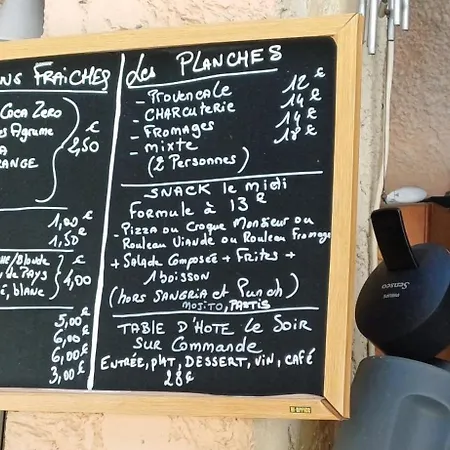 NS FRAÎCHES
COCA ZERO
ES AGRUME
A
RANGE
2,50 €
1,00 €
1,50 €
, DE PAYS
É, BLANC
4,00
5,00 €
6,00 €
6,00 €
3,00 €
Les PLANCHES
- PROVENCALE 12 €
- CHARCUTERIE 14 €
- FROMAGES 14 €
- MIXTE 18 €
(2 Personnes)
SNACK le midi
FORMULE à 13 €
PIZZA ou CROQUE MONSIEUR ou
ROULEAU VIANDE OU ROULEAU FROMAGE
+ SALADE COMPOSÉE + FRITES +
1 boisson
(hors SANGRIA et Punch)
MOJITO, PASTIS
TABLE D'HOTE le SOIR
SUR COMMANDE
ENTRÉE, plAT, DESSERT, VIN, CAFÉ
28 €
PHILIPS
Senseo